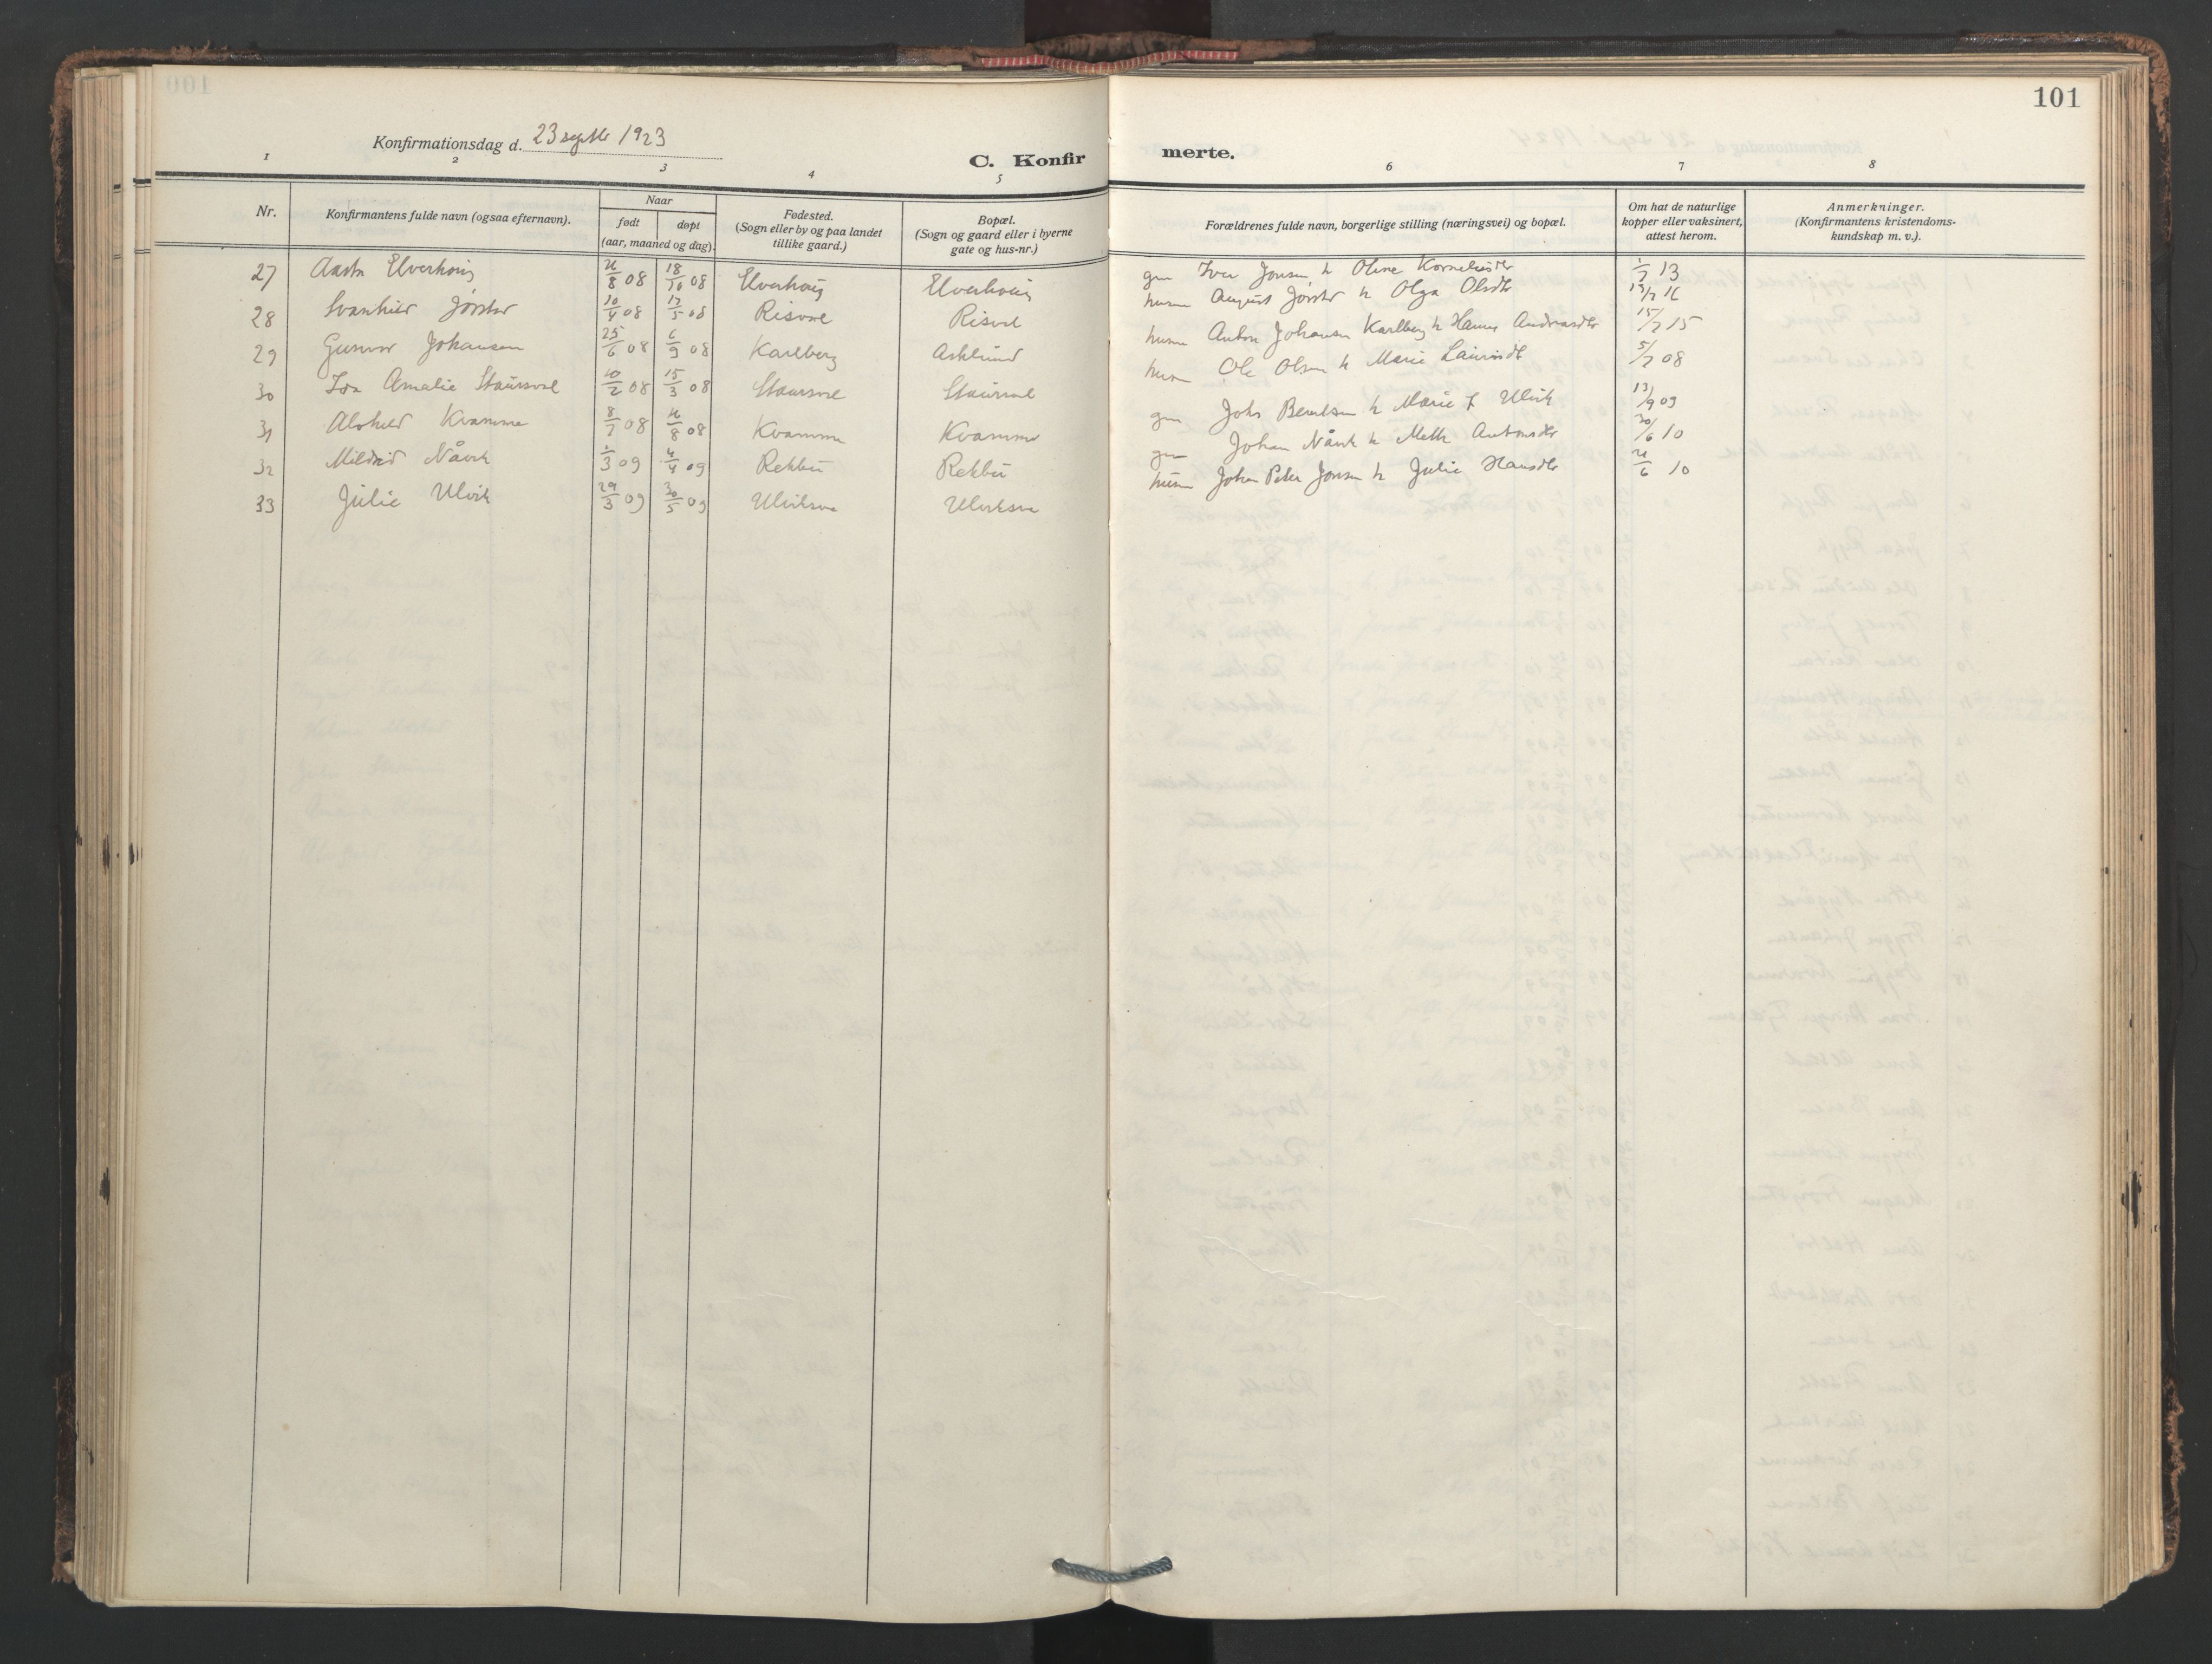 101
Konfirmationsdag d. 23 septbr 1923
C. Konfir merte.
1 2 3 4 5 6 7 8
Nr.
Konfirmantens fulde navn (ogsaa efternavn).
Naar
født
døpt
(aar, maaned og dag).
Fødested.
(Sogn eller by og paa landet
tillike gaard.)
Bopæl.
(Sogn og gaard eller i byerne
gate og hus-nr.)
Forældrenes fulde navn, borgerlige stilling (næringsvei) og bopæl.
Om hat de naturlige
kopper eller vaksinert,
attest herom.
Anmerkninger.
(Konfirmantens kristendoms-
kundskap m. v.).
27 Aasta Elverhøig 08 18/10 08 Elverhøig Elverhøig gm Iver Jonsen h Oline Korneliusdtr 13
28 Svanhild Jørstad 10/4 08 17/5 08 Risvol Risvol husm August Jørstad h Olga Olsdtr 16
29 Gunvor Johansen 25/6 08 6/9 08 Karlberg Asklund husm Anton Johansen Karlberg h Hanna Andreasdtr 15/7 15
30 Ida Amalie Staursvol 10/2 08 15/3 08 Staursvol Staursvol husm Ole Olsen h Marie Lauritsdtr 5/7 08
31 Alvhild Kvamme 8/7 08 08 Kvamme Kvamme gm Johs Berntsen h Marie f Ulvik 13/9 09
32 Mildrid Nåvik 09 4/4 09 Rekbu Rekbu gm Johan Nåvik h Meth Antonsdtr 30/6 10
33 Julie Ulvik 29/3 09 30/5 09 Ulviksve Ulviksve husm Johan Peter Jonsen h Julie Hansdtr 10